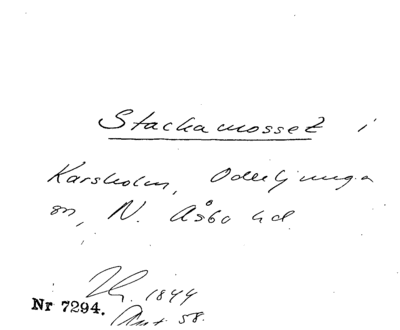 Stackamosset i
Karsholm, Oderljunga
sn, N. Åsbo hd.
1844
Nr 7294.
Ant. 58.